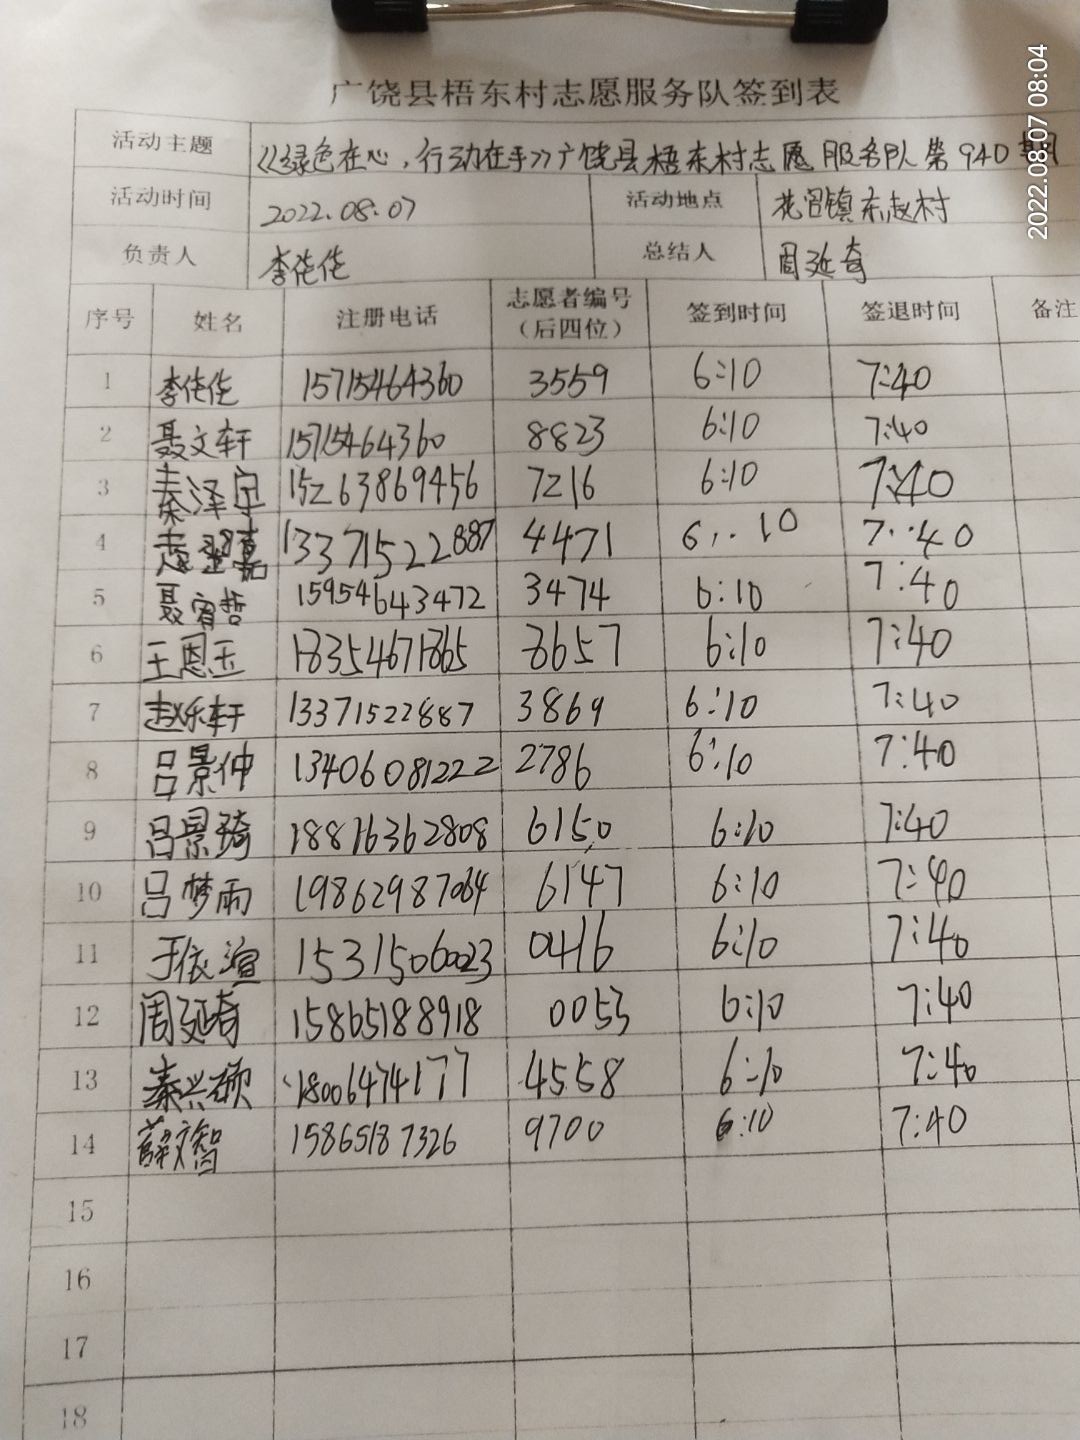 广饶县梧东村志愿服务队签到表
活动主题 《绿色在心,行动在手》广饶县梧东村志愿服务队第940期
活动时间 2022.08.07 活动地点 花官镇东赵村
负责人 李佬佬 总结人 周延奇
序号 姓名 注册电话 志愿者编号(后四位) 签到时间 签退时间 备注
1 15715464360 3559 6:10 7:40
2 聂文轩 15715464360 8823 6:10 7:40
3 秦泽宇 15263869456 7216 6:10 7:40
4 13371522887 4471 6:10 7:40
5 聂宥哲 15954643472 3474 6:10 7:40
6 王恩玉 18354671865 8657 6:10 7:40
7 赵乐轩 13371522887 3869 6:10 7:40
8 吕景仲 13406081222 2786 6:10 7:40
9 吕景琦 18816362808 6150 6:10 7:40
10 吕梦雨 19862987064 6147 6:10 7:40
11 于依渲 1531506023 0416 6:10 7:40
12 周延奇 15865188918 0053 6:10 7:40
13 秦兴硕 18006474177 4558 6:10 7:40
14 薛文智 15865187326 9700 6:10 7:40
15
16
17
18
2022.08.07 08:04